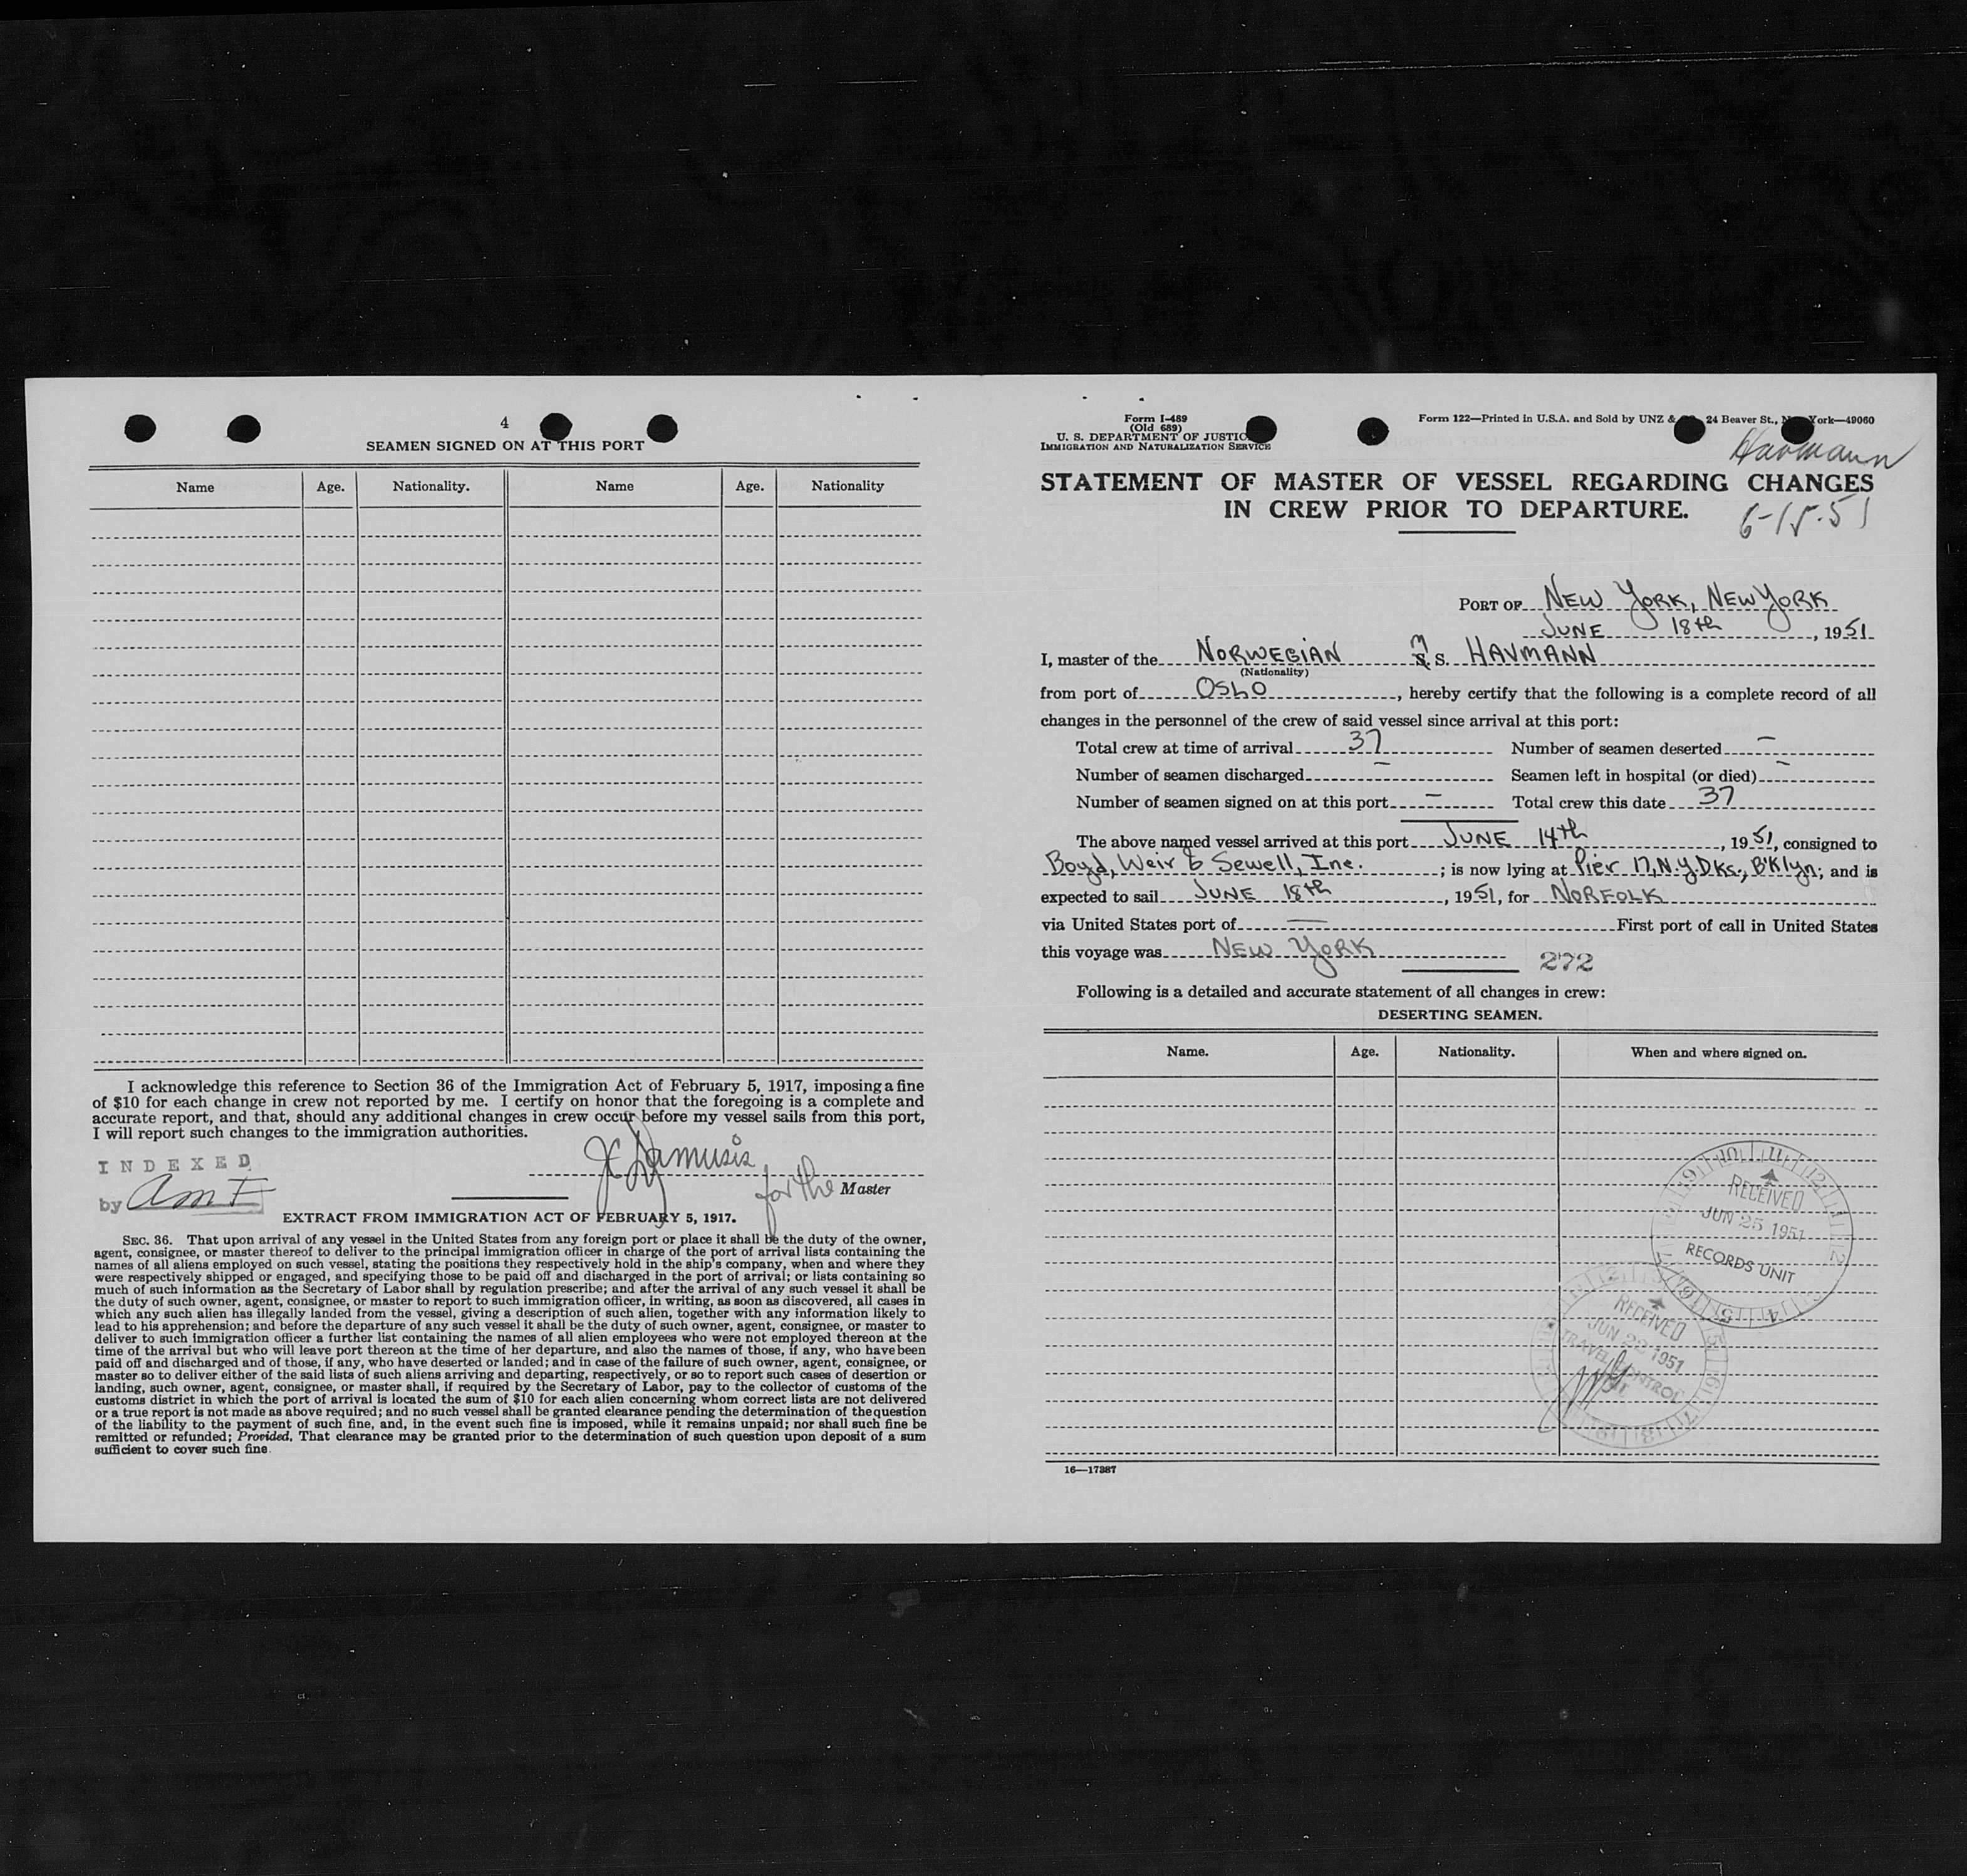 4
SEAMEN SIGNED ON AT THIS PORT
Name Age. Nationality. Name Age. Nationality
I acknowledge this reference to Section 36 of the Immigration Act of February 5, 1917, imposing a fine
of $10 for each change in crew not reported by me. I certify on honor that the foregoing is a complete and
accurate report, and that, should any additional changes in crew occur before my vessel sails from this port,
I will report such changes to the immigration authorities.
INDEXED
by
for the Master
EXTRACT FROM IMMIGRATION ACT OF FEBRUARY 5, 1917.
SEC. 36. That upon arrival of any vessel in the United States from any foreign port or place it shall be the duty of the owner,
agent, consignee, or master thereof to deliver to the principal immigration officer in charge of the port of arrival lists containing the
names of all aliens employed on such vessel, stating the positions they respectively hold in the ship's company, when and where they
were respectively shipped or engaged, and specifying those to be paid off and discharged in the port of arrival; or lists containing so
much of such information as the Secretary of Labor shall by regulation prescribe; and after the arrival of any such vessel it shall be
the duty of such owner, agent, consignee, or master to report to such immigration officer, in writing, as soon as discovered, all cases in
which any such alien has illegally landed from the vessel, giving a description of such alien, together with any information likely to
lead to his apprehension; and before the departure of any such vessel it shall be the duty of such owner, agent, consignee, or master to
deliver to such immigration officer a further list containing the names of all alien employees who were not employed thereon at the
time of the arrival but who will leave port thereon at the time of her departure, and also the names of those, if any, who have been
paid off and discharged and of those, if any, who have deserted or landed; and in case of the failure of such owner, agent, consignee, or
master so to deliver either of the said lists of such aliens arriving and departing, respectively, or so to report such cases of desertion or
landing, such owner, agent, consignee, or master shall, if required by the Secretary of Labor, pay to the collector of customs of the
customs district in which the port of arrival is located the sum of $10 for each alien concerning whom correct lists are not delivered
or a true report is not made as above required; and no such vessel shall be granted clearance pending the determination of the question
of the liability to the payment of such fine, and, in the event such fine is imposed, while it remains unpaid; nor shall such fine be
remitted or refunded; Provided, That clearance may be granted prior to the determination of such question upon deposit of a sum
sufficient to cover such fine.
Form I-489
(Old 689)
U. S. DEPARTMENT OF JUSTIC
IMMIGRATION AND NATURALIZATION SERVICE
Form 122—Printed in U.S.A. and Sold by UNZ & 24 Beaver St., N York—49060
Havmann
STATEMENT OF MASTER OF VESSEL REGARDING CHANGES
IN CREW PRIOR TO DEPARTURE.
6-18-51
PORT OF NEW YORK, NEW YORK
JUNE 18th, 1951
I, master of the NORWEGIAN M S. HAVMANN
(Nationality)
from port of OSLO, hereby certify that the following is a complete record of all
changes in the personnel of the crew of said vessel since arrival at this port:
Total crew at time of arrival 37 Number of seamen deserted —
Number of seamen discharged — Seamen left in hospital (or died) —
Number of seamen signed on at this port — Total crew this date 37
The above named vessel arrived at this port JUNE 14th, 1951, consigned to
Boyd, Weir & Sewell, Inc.; is now lying at Pier 17, N.Y. Dks., B'klyn; and is
expected to sail JUNE 18th, 1951, for NORFOLK
via United States port of — First port of call in United States
this voyage was NEW YORK
272
Following is a detailed and accurate statement of all changes in crew:
DESERTING SEAMEN.
Name. Age. Nationality. When and where signed on.
RECEIVED
JUN 25 1951
RECORDS UNIT
RECEIVED
JUN 22 1951
TRAVEL CONTROL
16—17387